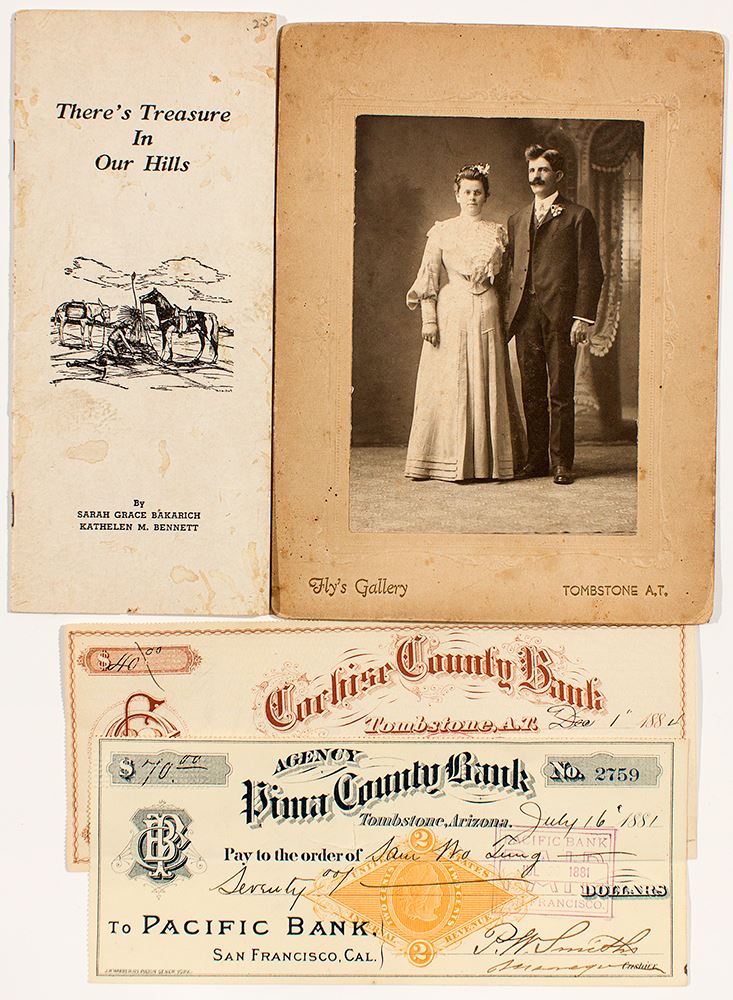 25
There's Treasure
In
Our Hills
By
SARAH GRACE BAKARICH
KATHELEN M. BENNETT
Fly's Gallery
TOMBSTONE A.T.
$40.00
Cochise County Bank
Tombstone, A.T. Dec 1" 188
$70.00
AGENCY
Pima County Bank
No. 2759
Tombstone, Arizona, July 16" 1881
Pay to the order of Sam Wo Tung
Seventy 00/ DOLLARS
2
UNITED STATES
TWO CENTS
INTERNAL REVENUE
2
PACIFIC BANK
1881
SAN FRANCISCO.
TO PACIFIC BANK,
SAN FRANCISCO, CAL.
P.W. Smith
Manager Cashier